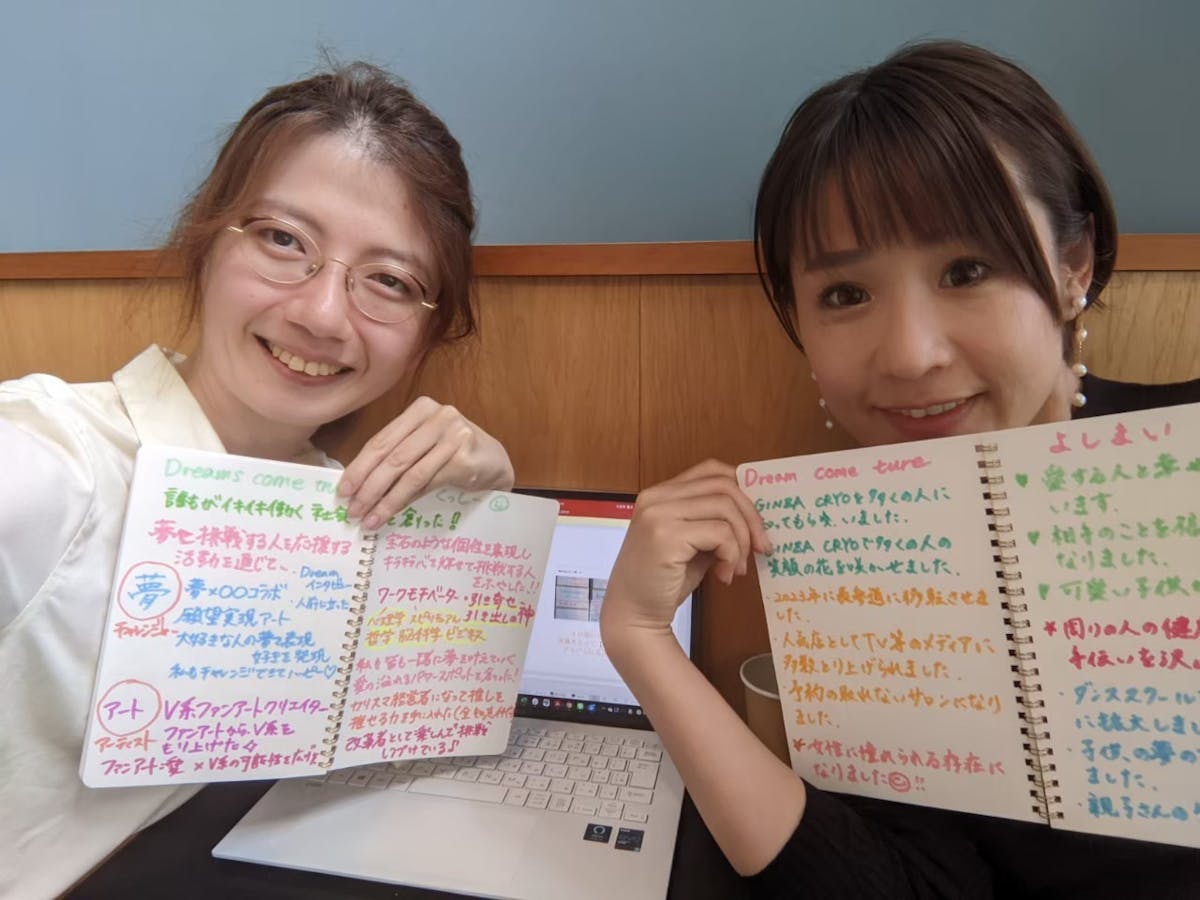 Dreams come tru
くっしー
誰もがイキイキ働く社会を創った!!
夢に挑戦する人を応援する
活動を通じて、
夢
チャレンジャー
夢×〇〇コラボ
・Dream
インタビュー
・人前に立った
願望実現アート
大好きな人の夢を表現
好きを発現
私もチャレンジできてハッピー♡
アート
アーティスト
V系ファンアートクリエイター
ファンアートからV系を
もり上げた☆
ファンアート
×V系の可能性を広げた
宝石のような個性を表現し
キラキラと輝せて挑戦する人
をふやした!!
ワークモチベーター・引き寄せ
・心理学 スピリチュアル 引き出しの神
哲学 脳科学 ビジネス
私も皆も一緒に夢を叶えていく
愛の溢れるパワースポットを創った!
カリスマ経営者になって推しを
推せる力を手に入れた
改革者として楽しんで挑戦
しつづけている♪
Dream come ture
GINZA CRYOを多くの人に
知ってもらえました.
GINZA CRYOで多くの人の
笑顔の花を咲かせました.
・2023年に表参道に移転させま
した.
・人気店としてTV等のメディアに
多数とり上げられました.
・予約の取れないサロンになり
ました.
*女性に憧れられる存在に
なりました☺!!
よしまい
♥愛する人と幸せ
います.
♥相手のことを
なりました.
♥可愛い子供
*周りの人の健康
手伝いを沢
・ダンススクール
に拡大しま
・子供の夢の
ました.
・親子さんの